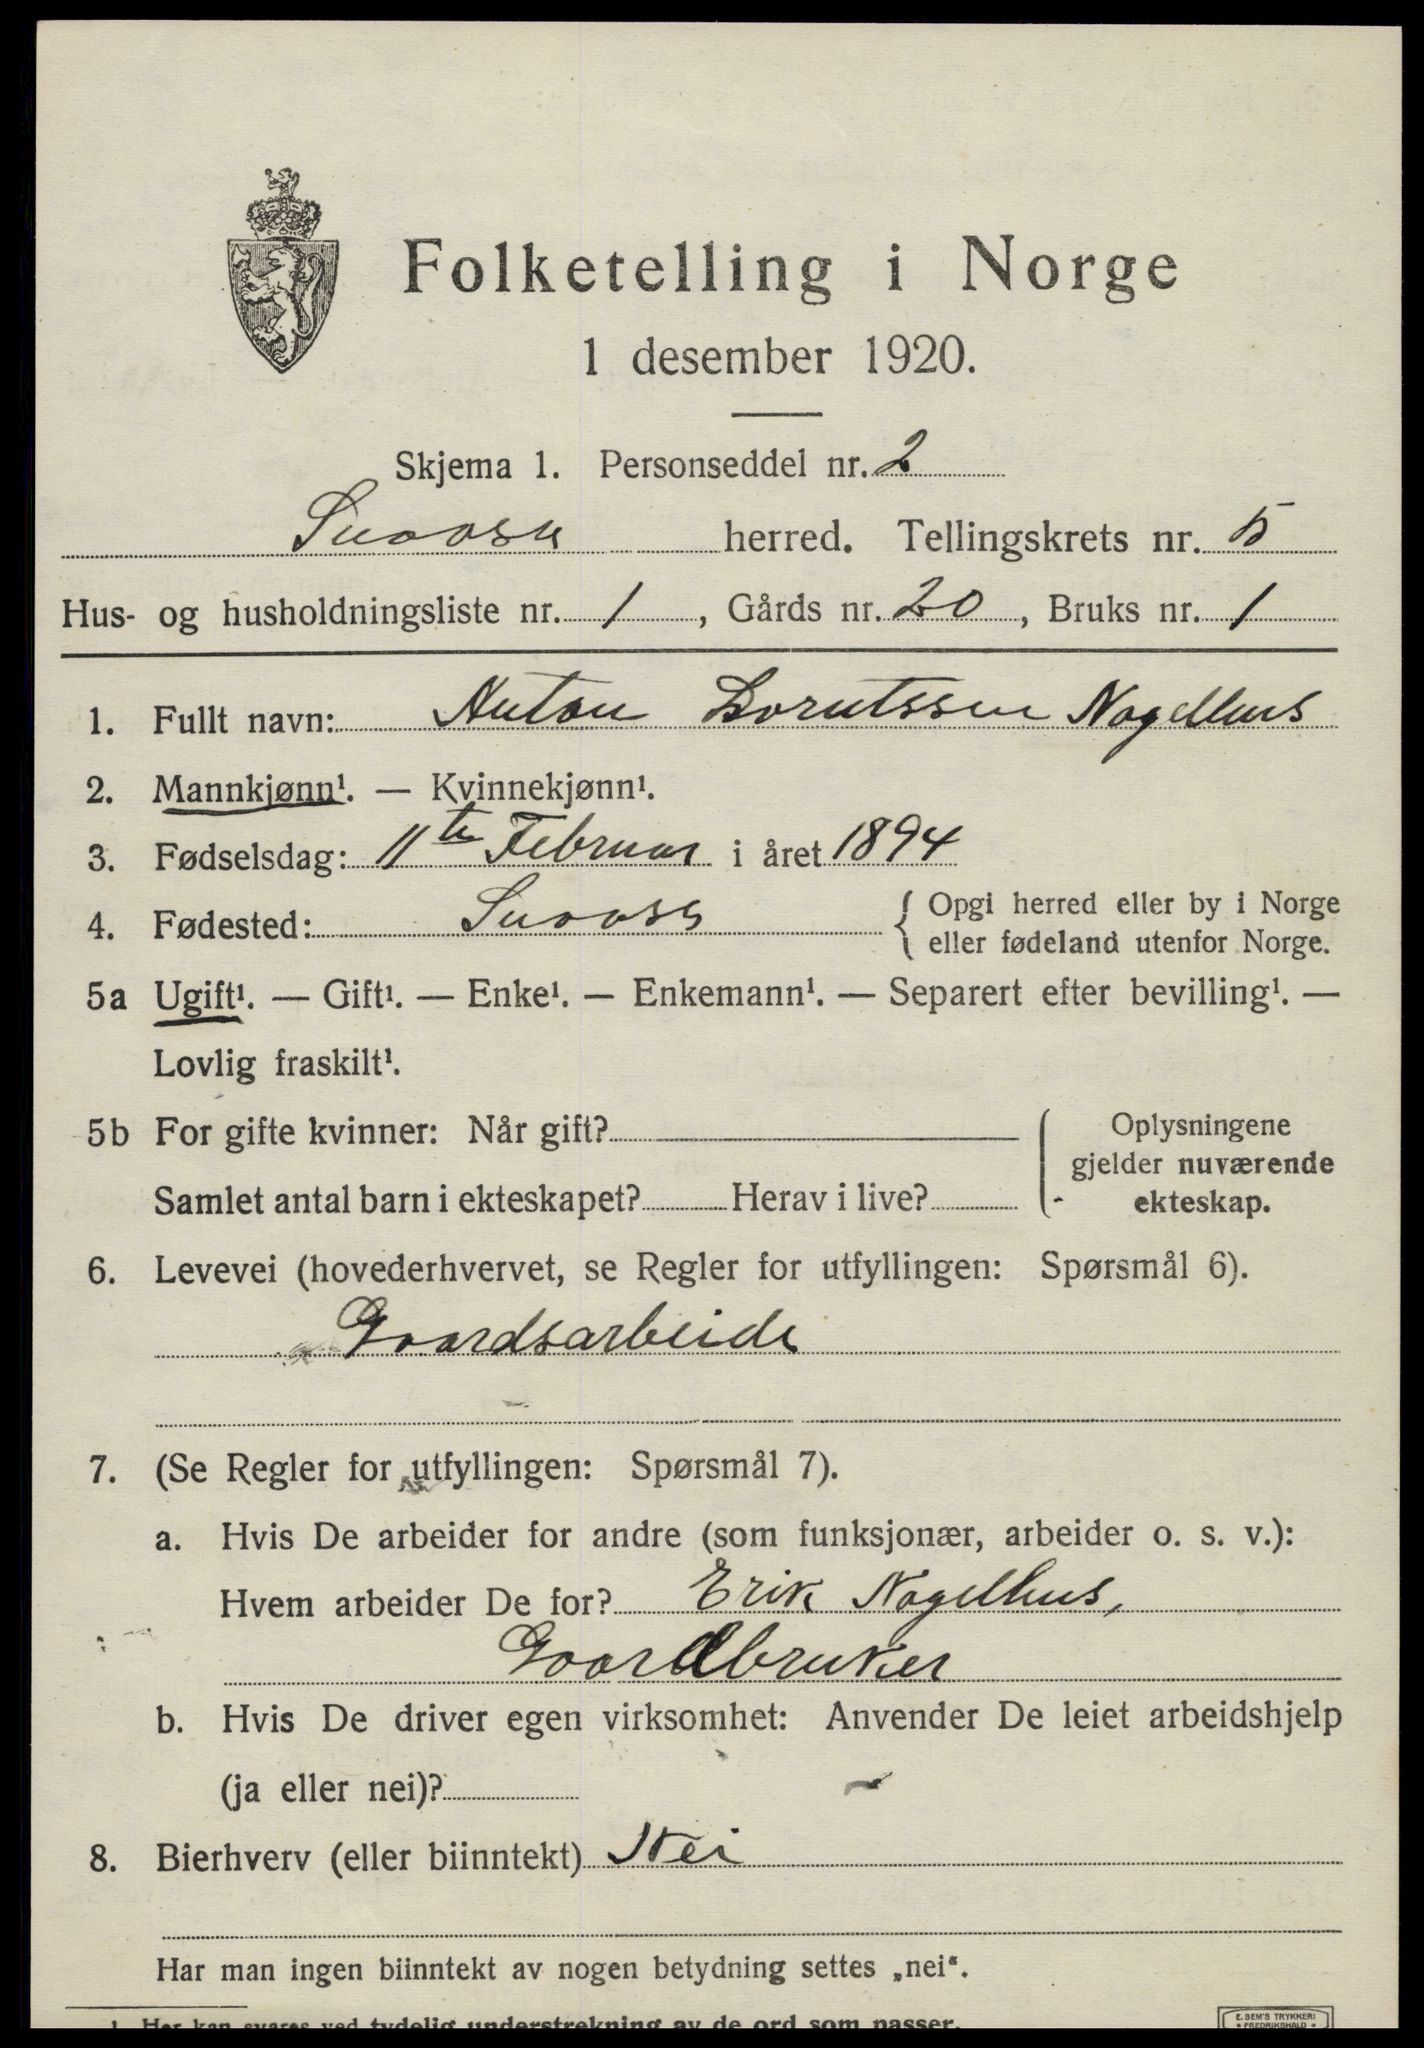 Folketelling i Norge
1 desember 1920.
Skjema 1. Personseddel nr. 2
Snaasa herred. Tellingskrets nr. 5
Hus- og husholdningsliste nr. 1, Gårds nr. 20, Bruks nr. 1
1. Fullt navn: Anton Borntssen Nagelhus
2. Mannkjønn¹. — Kvinnekjønn¹.
3. Fødselsdag: 11te Februar i året 1894
4. Fødested: Snaasa { Opgi herred eller by i Norge
eller fødeland utenfor Norge.
5a Ugift¹. — Gift¹. — Enke¹. — Enkemann¹. — Separert efter bevilling¹. —
Lovlig fraskilt¹.
5b For gifte kvinner: Når gift? ( Oplysningene
gjelder nuværende
Samlet antal barn i ekteskapet? Herav i live? ekteskap.
6. Levevei (hovederhvervet, se Regler for utfyllingen: Spørsmål 6).
Gaardsarbeide
7. (Se Regler for utfyllingen: Spørsmål 7).
a. Hvis De arbeider for andre (som funksjonær, arbeider o. s. v.):
Hvem arbeider De for? Erik Nagelhus,
Gaardbruker
b. Hvis De driver egen virksomhet: Anvender De leiet arbeidshjelp
(ja eller nei)?
8. Bierhverv (eller biinntekt) Nei
Har man ingen biinntekt av nogen betydning settes „nei“.
1 Her kan svares ved tydelig understrekning av de ord som passer.
E. SEM'S TRYKKERI
• FREDRIKSHALD •